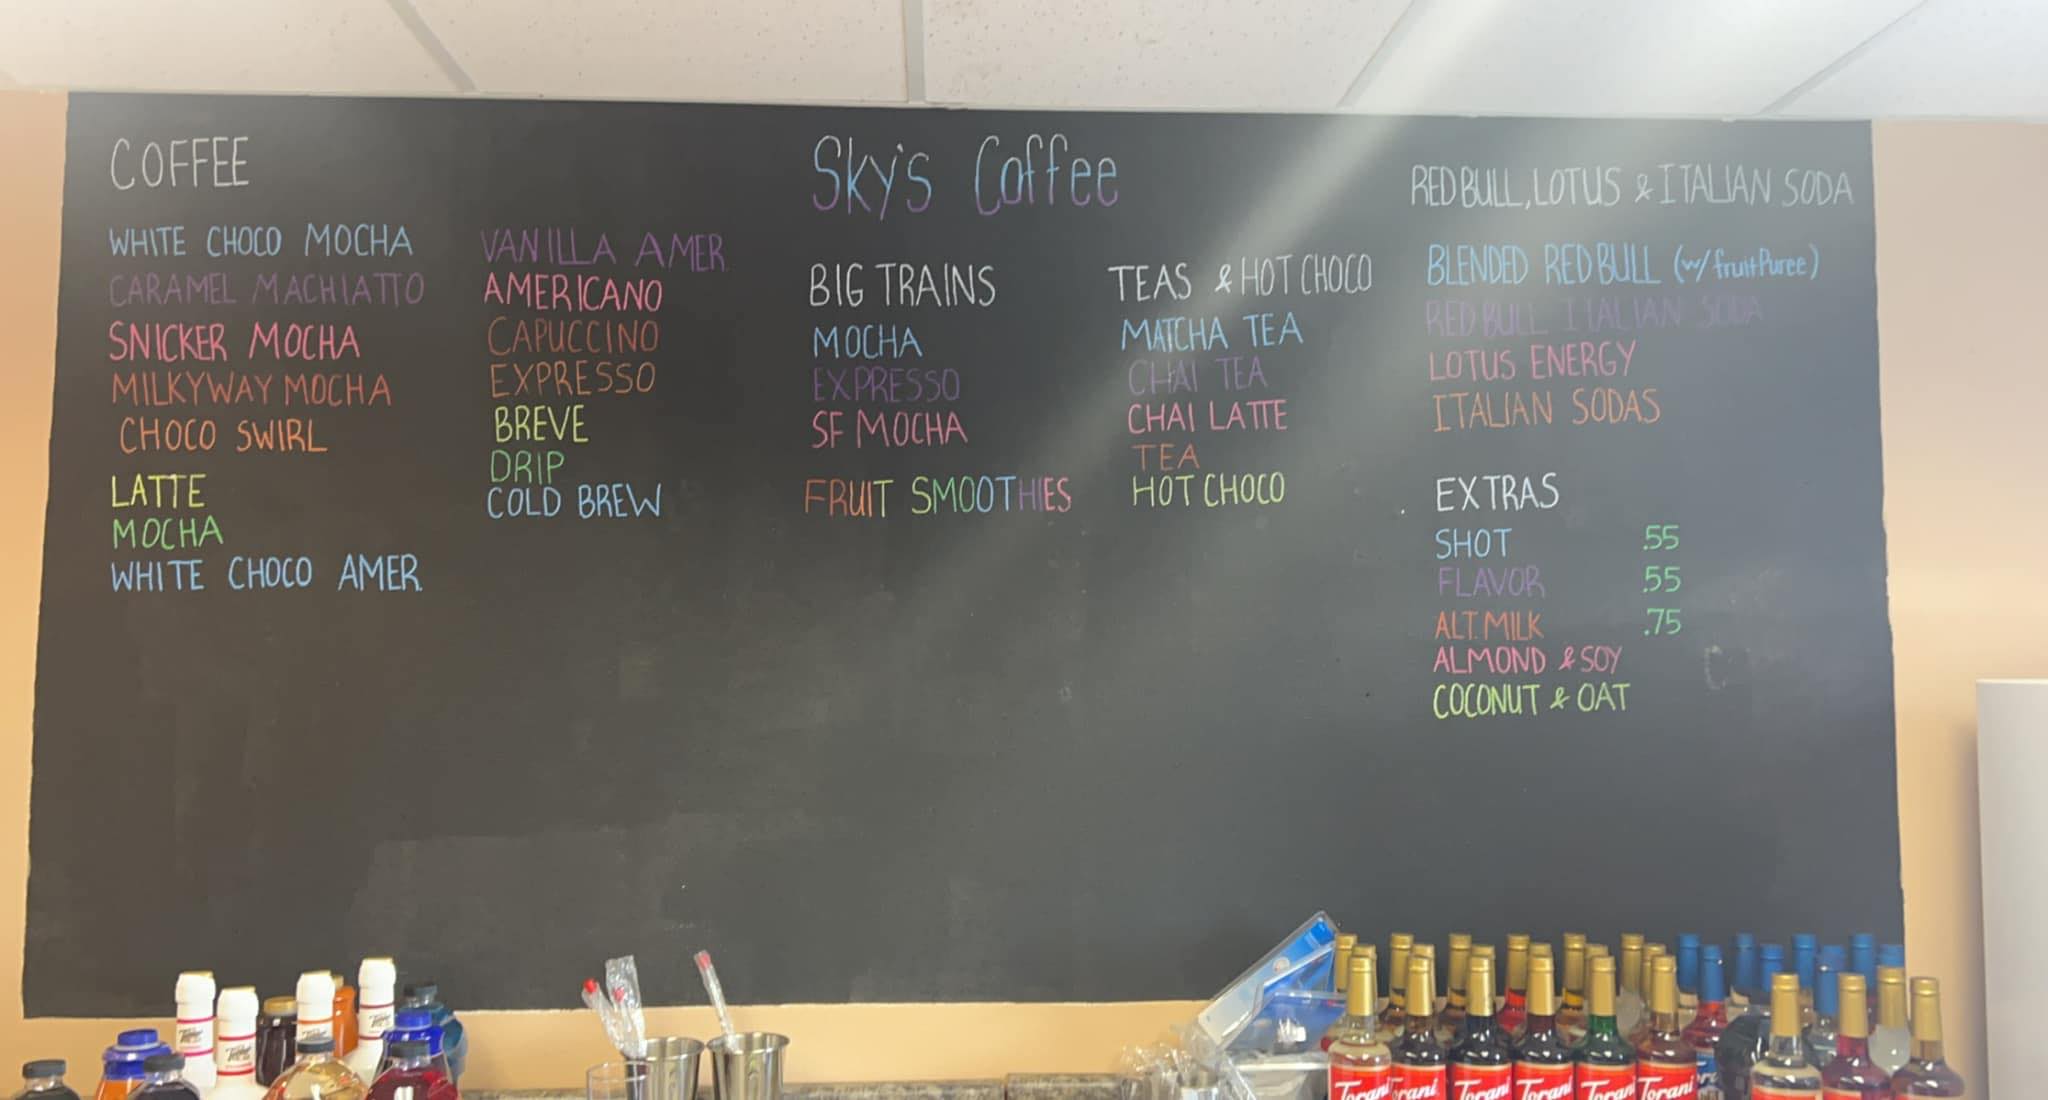 COFFEE
WHITE CHOCO MOCHA
CARAMEL MACHIATTO
SNICKER MOCHA
MILKYWAY MOCHA
CHOCO SWIRL
LATTE
MOCHA
WHITE CHOCO AMER.
VANILLA AMER.
AMERICANO
CAPUCCINO
EXPRESSO
BREVE
DRIP
COLD BREW
Sky's Coffee
BIG TRAINS
MOCHA
EXPRESSO
SF MOCHA
FRUIT SMOOTHIES
TEAS & HOT CHOCO
MATCHA TEA
CHAI TEA
CHAI LATTE
TEA
HOT CHOCO
RED BULL, LOTUS & ITALIAN SODA
BLENDED RED BULL (w/ fruit Puree)
RED BULL ITALIAN SODA
LOTUS ENERGY
ITALIAN SODAS
EXTRAS
SHOT .55
FLAVOR .55
ALT. MILK .75
ALMOND & SOY
COCONUT & OAT
Torani
Torani
Torani
Torani
Torani
Torani